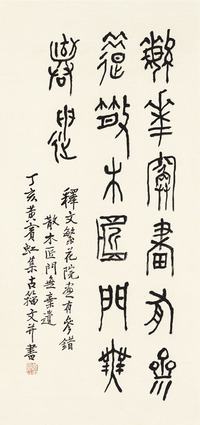 繁華院畫有參
錯散木匠門無
棄遺
釋文繁花院畫有參錯
散木匠門無棄遺
丁亥黃賓虹集古籀文并書